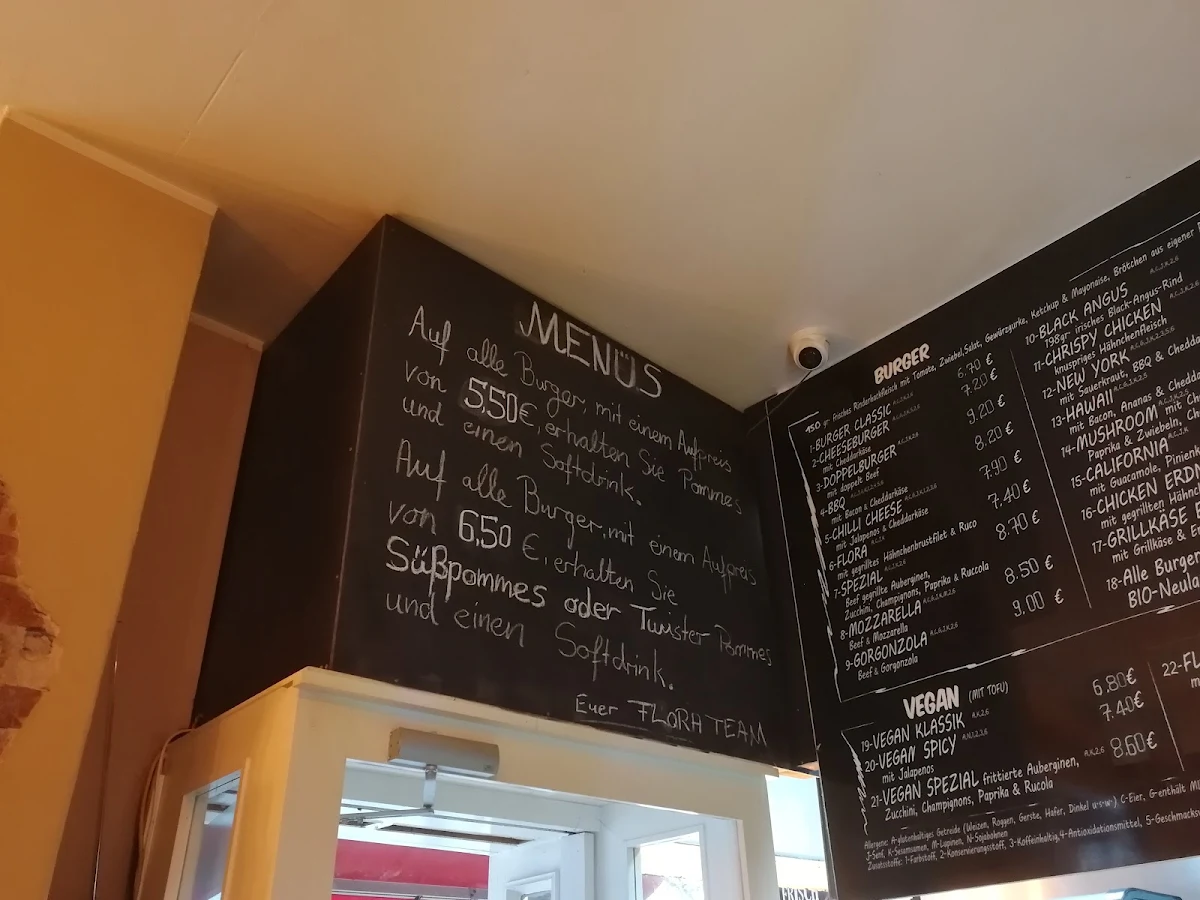 MENÜS
Auf alle Burger, mit einem Aufpreis
von 5,50€, erhalten Sie Pommes
und einen Softdrink.
Auf alle Burger, mit einem Aufpreis
von 6,50 €, erhalten Sie
Süßpommes oder Twister Pommes
und einen Softdrink.
Euer FLORA TEAM
BURGER
150 gr frisches Rinderhackfleisch mit Tomate, Zwiebel, Salat, Gewürzgurke, Ketchup & Mayonaise, Brötchen aus eigener
1-BURGER CLASSIC 6.70 €
2-CHEESEBURGER 7.20 €
mit Cheddarkäse
3-DOPPELBURGER 9.20 €
mit doppelt Beef
4-BBQ 8.20 €
mit Bacon & Cheddarkäse
5-CHILLI CHEESE 7.90 €
mit Jalapenos & Cheddarkäse
6-FLORA 7.40 €
mit gegrilltes Hähnchenbrustfilet & Ruco
7-SPEZIAL 8.70 €
Beef gegrillte Auberginen,
Zucchini, Champignons, Paprika & Ruccola
8-MOZZARELLA 8.50 €
Beef & Mozzarella
9-GORGONZOLA 9.00 €
Beef & Gorgonzola
10-BLACK ANGUS
198gr irisches Black-Angus-Rind
11-CHRISPY CHICKEN
knuspriges Hähnchenfleisch
12-NEW YORK
mit Sauerkraut, BBQ & Chedda
13-HAWAII
mit Bacon, Ananas & Chedda
14-MUSHROOM mit
Paprika & Zwiebeln,
15-CALIFORNIA
mit Guacamole, Pinienk
16-CHICKEN ERD
mit gegrillten Hähn
17-GRILLKÄSE
mit Grillkäse &
18-Alle Burger
BIO-Neula
VEGAN (MIT TOFU)
19-VEGAN KLASSIK 6.80€
20-VEGAN SPICY 7.40€
mit Jalapenos
21-VEGAN SPEZIAL frittierte Auberginen, 8.60€
Zucchini, Champignons, Paprika & Rucola
22-FL
Allergene: A-glutenhaltiges Getreide (Weizen, Roggen, Gerste, Hafer, Dinkel u.s.w.) C-Eier, G-enthält
J-Senf, K-Sesamsamen, M-Lupinen, N-Sojabohnen
Zusatzstoffe: 1-Farbstoff, 2-Konservierungsstoff, 3-Koffeinhaltig, 4-Antioxidationsmittel, 5-Geschmacks
FRISCH